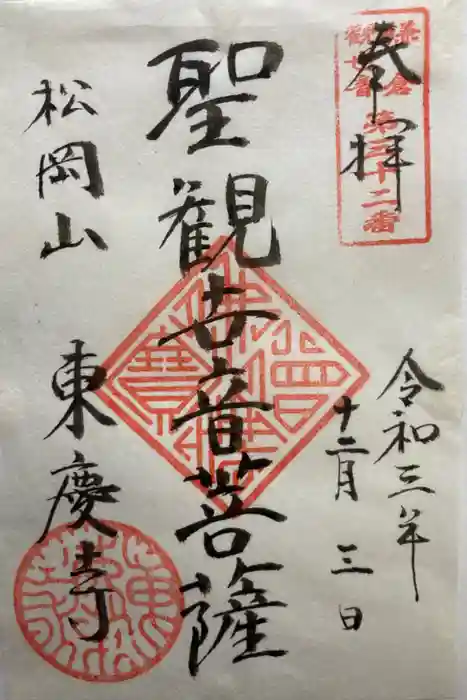 奉拝
鎌倉
観世音
第三十二番
令和三年
十二月三日
聖観世音菩薩
松岡山
東慶寺